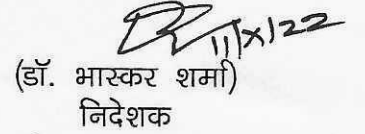 11/X/22
(डॉ. भास्कर शर्मा)
निदेशक